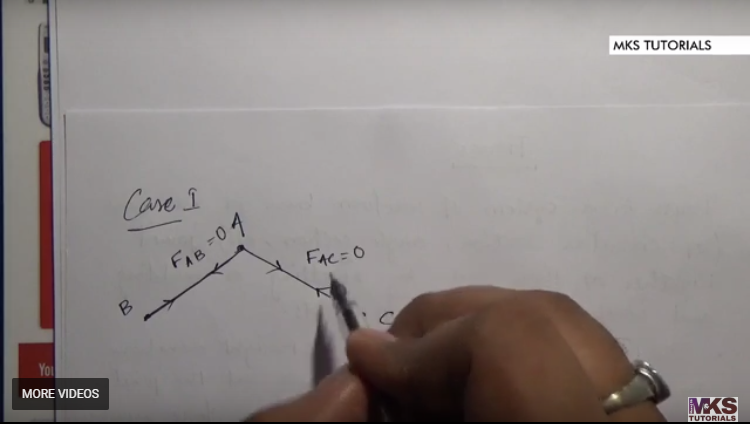 MKS TUTORIALS
Case I
A
F_AB = 0
F_AC = 0
B
C
MORE VIDEOS
MKS
TUTORIALS